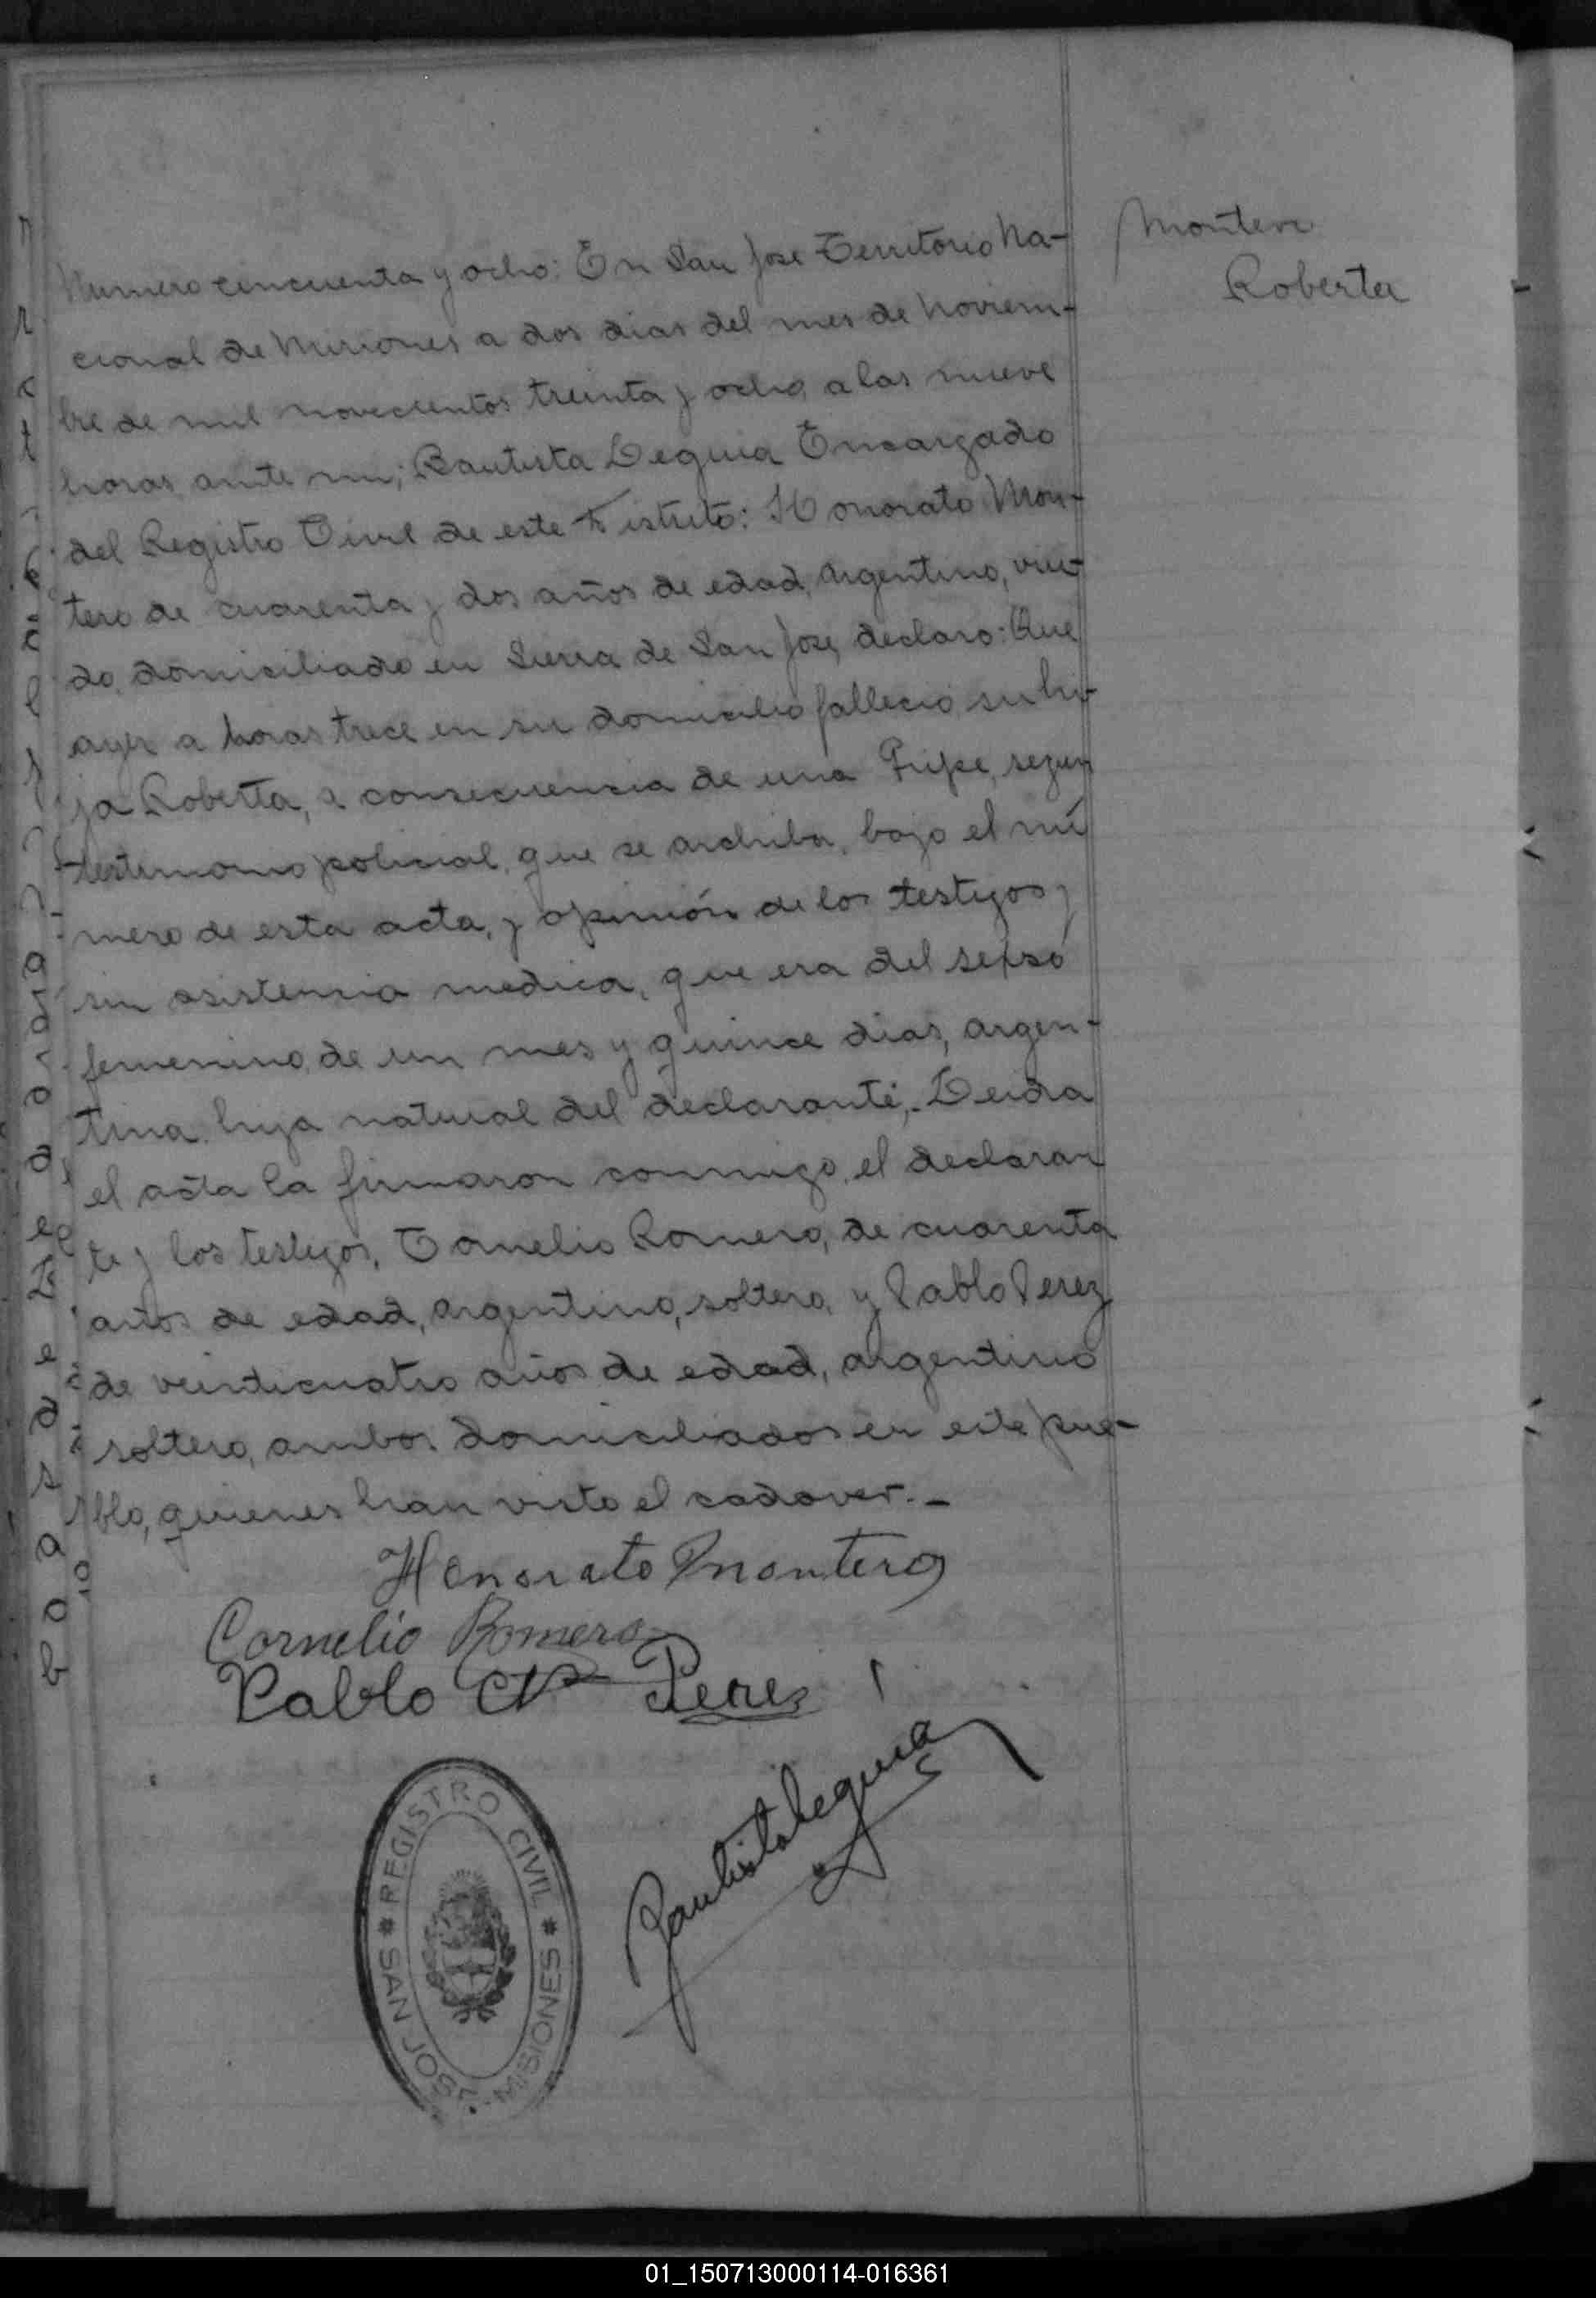 Montero
Roberta
Numero cincuenta y ocho: En San Jose Territorio Na-
cional de Misiones a dos dias del mes de Noviem-
bre de mil novecientos treinta y ocho, a las nueve
horas ante mi; Bautista Leguia Encargado
del Registro Civil de este Distrito: Honorato Mon-
tero de cuarenta y dos años de edad, argentino, viu-
do, domiciliado en Sierra de San Jose, declaro: Que
ayer a horas trece en su domicilio fallecio su hi-
ja Roberta, a consecuencia de una Gripe, segun
testimonio policial, que se archiba, bajo el nú
mero de esta acta, y opinión de los testigos y
sin asistencia medica, que era del sexso
femenino, de un mes y quince dias, argen-
tina, hija natural del declarante,. Leida
el acta la firmaron conmigo, el declaran
te y los testigos, Cornelio Romero, de cuarenta
años de edad, argentino, soltero, y Pablo Perez
de veinticuatro años de edad, argentino
soltero, ambos domiciliados en este pue-
blo, quienes han visto el cadaver.-
Honorato Montero
Cornelio Romero
Pablo Perez
Bautista Leguia
REGISTRO CIVIL
SAN JOSE - MISIONES
01_150713000114-016361